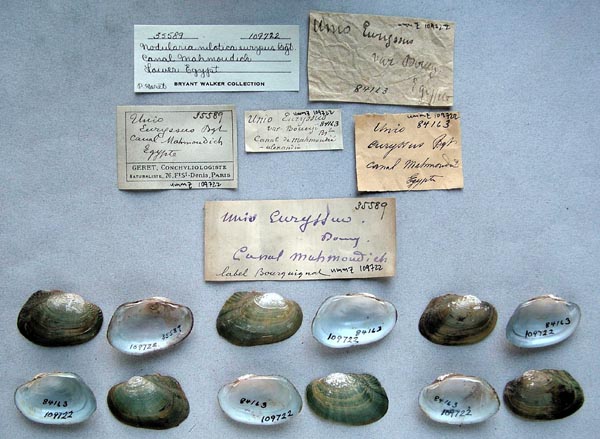 35589 109722
Nodularia nilotica euryssus Bgt.
Canal Mahmoudich
Lower Egypt
P. Geret BRYANT WALKER COLLECTION
ummz 109722
Unio Euryssus
var
84163
Egypte
35589
Unio
Euryssus Bgt
Canal Mahmoudich
Egypte
GERET, CONCHYLIOLOGISTE
NATURALISTE, 76, Fg St-Denis, PARIS
ummz 109722
ummz 109722
Unio Euryssus
84163
var Bourg.
Canal de Mahmoudié
alexandrie
ummz 109722
84163
Unio
euryssus Bgt
canal Mahmoudié
Egypte
35589
Unio Euryssus.
Bourg.
Canal Mahmoudich
label Bourguignat ummz 109722
109722 35589
84163
109722
84163
109722
84163
109722
84163
109722
84163
109722